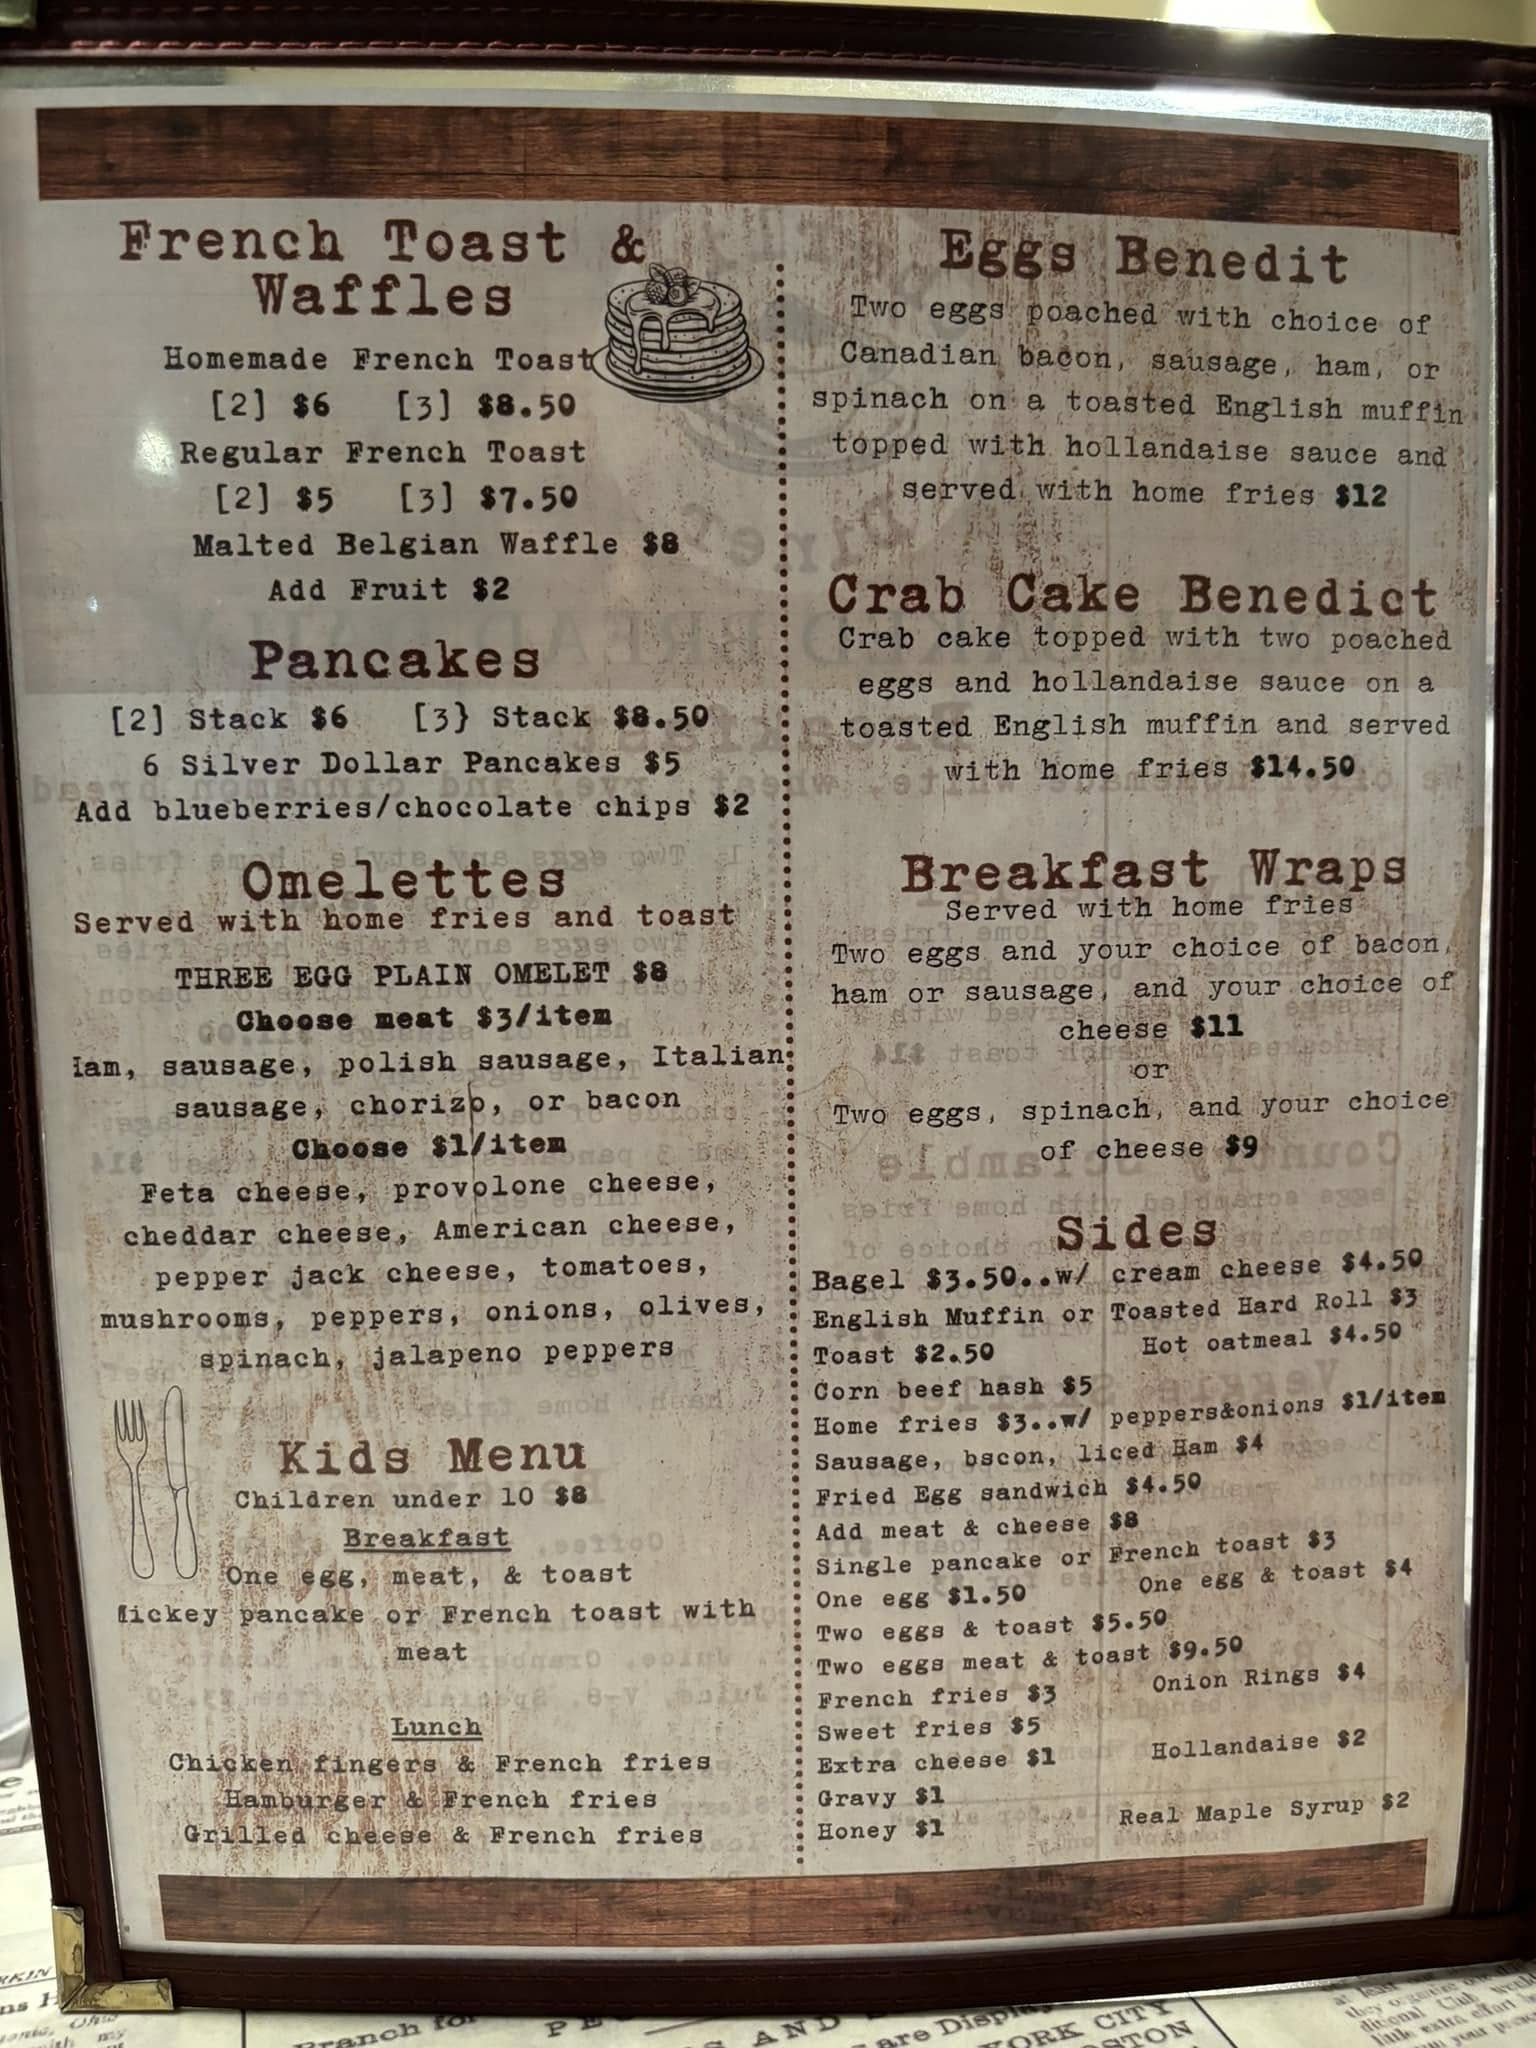 French Toast &
Waffles
Homemade French Toast
[2] $6 [3] $8.50
Regular French Toast
[2] $5 [3] $7.50
Malted Belgian Waffle $8
Add Fruit $2
Pancakes
[2] Stack $6 [3} Stack $8.50
6 Silver Dollar Pancakes $5
Add blueberries/chocolate chips $2
Omelettes
Served with home fries and toast
THREE EGG PLAIN OMELET $8
Choose meat $3/item
Ham, sausage, polish sausage, Italian
sausage, chorizo, or bacon
Choose $1/item
Feta cheese, provolone cheese,
cheddar cheese, American cheese,
pepper jack cheese, tomatoes,
mushrooms, peppers, onions, olives,
spinach, jalapeno peppers
Kids Menu
Children under 10 $8
Breakfast
One egg, meat, & toast
Mickey pancake or French toast with
meat
Lunch
Chicken fingers & French fries
Hamburger & French fries
Grilled cheese & French fries
Eggs Benedit
Two eggs poached with choice of
Canadian bacon, sausage, ham, or
spinach on a toasted English muffin
topped with hollandaise sauce and
served with home fries $12
Crab Cake Benedict
Crab cake topped with two poached
eggs and hollandaise sauce on a
toasted English muffin and served
with home fries $14.50
Breakfast Wraps
Served with home fries
Two eggs and your choice of bacon,
ham or sausage, and your choice of
cheese $11
or
Two eggs, spinach, and your choice
of cheese $9
Sides
Bagel $3.50..w/ cream cheese $4.50
English Muffin or Toasted Hard Roll $3
Toast $2.50 Hot oatmeal $4.50
Corn beef hash $5
Home fries $3..w/ peppers&onions $1/item
Sausage, bscon, liced Ham $4
Fried Egg sandwich $4.50
Add meat & cheese $8
Single pancake or French toast $3
One egg $1.50 One egg & toast $4
Two eggs & toast $5.50
Two eggs meat & toast $9.50
French fries $3 Onion Rings $4
Sweet fries $5
Extra cheese $1 Hollandaise $2
Gravy $1
Honey $1 Real Maple Syrup $2
Branch for
AND
are Display
YORK CITY